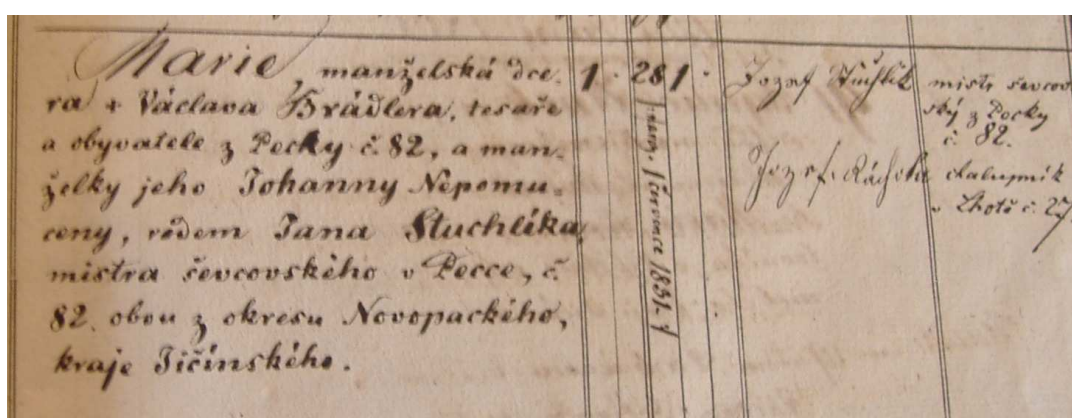 Marie, manželská dce-
ra + Václava Brádlera, tesaře
a obyvatele z Pecky č. 82, a man-
želky jeho Johanny Nepomu-
ceny, rodem Jana Stuchlíka,
mistra ševcovského v Pecce, č.
82. obou z okresu Novopackého,
kraje Jičínského.
1. 28 1.
/: července 1831. :/
Jozef Stuchlík mistr ševcov-
ský z Pecky
č. 82.
Jozef chalupník
v Lhotě č. 27.